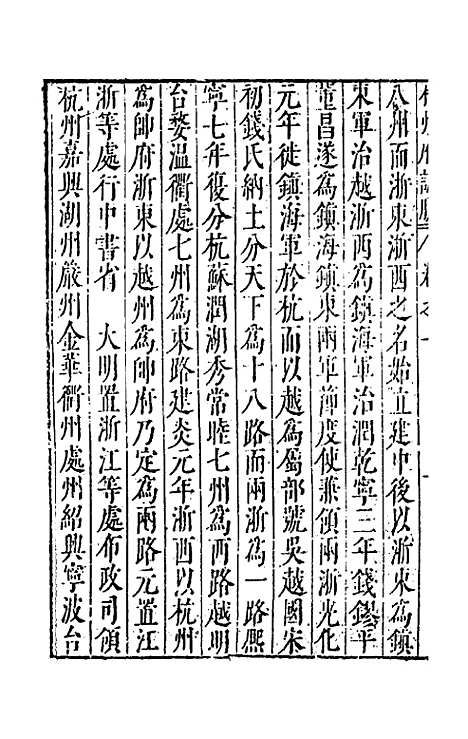 八州而浙東浙西之名始立建中後以浙東為鎮
東軍治越浙西為鎮海軍治潤乾寧三年錢鏐平
董昌遂為鎮海鎮東兩軍節度使兼領兩浙光化
元年徙鎮海軍於杭而以越為屬部號吳越國宋
初錢氏納土分天下為十八路而兩浙為一路熈
寧七年復分杭蘇潤湖秀常睦七州為西路越明
台婺溫衢處七州為東路建炎元年浙西以杭州
為帥府浙東以越州為帥府乃定為兩路元置江
浙等處行中書省　大明置浙江等處布政司領
杭州嘉興湖州嚴州金華衢州處州紹興寧波台